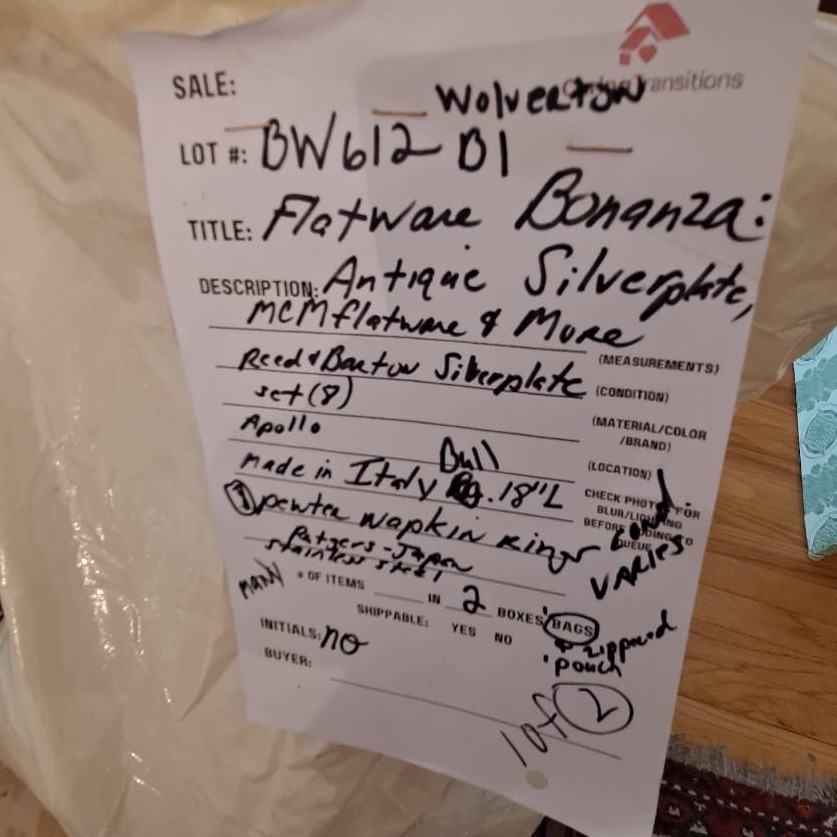 Caring Transitions
SALE: Wolverton
LOT #: BW612 D1
TITLE: Flatware Bonanza:
DESCRIPTION: Antique Silverplate,
MCM flatware & More
(MEASUREMENTS)
Reed & Barton Silverplate
(CONDITION)
set (8)
(MATERIAL/COLOR
/BRAND)
Apollo
(LOCATION)
made in Italy Bull 18"L
CHECK PHOTOS FOR
BLUR/LIGHTING
BEFORE ADDING TO
QUEUE
pewter Napkin Rings
VARIES
Rutgers-Japan
stainless steel
MANY # OF ITEMS IN 2 BOXES/BAGS
SHIPPABLE: YES NO
& zippered
pouch
INITIALS: no
BUYER:
1 of 2